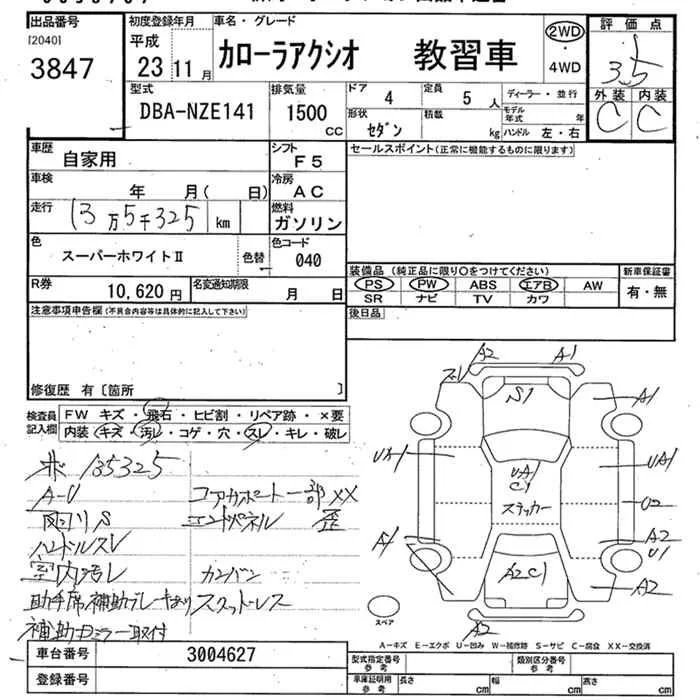 出品番号
[2040]
3847
初度登録年月
平成
23 11 月
車名・グレード
カローラアクシオ 教習車
2WD
・
4WD
評価点
3.5
外装 内装
C C
型式
DBA-NZE141
排気量
1500
CC
ドア
4
定員
5 人
ディーラー・並行
形状
セダン
積載
kg
モデル年式 年
ハンドル 左・右
車歴
自家用
シフト
F5
セールスポイント(正常に機能するものに限ります)
車検
年 月( 日)
冷房
AC
走行
13万5千325 km
燃料
ガソリン
色
スーパーホワイトⅡ
色替
色コード
040
R券
10,620 円
名変通知期限
月 日
装備品 (純正品に限り○をつけてください)
PS PW ABS エアB AW
SR ナビ TV カワ
新車保証書
有・無
後日品
注意事項申告欄(不具合内容等は具体的に記入して下さい)
修復歴 有〔箇所 〕
検査員記入欄
FW キズ・飛石・ヒビ割・リペア跡・×要
内装 キズ・汚レ・コゲ・穴・スレ・キレ・破レ
135325
A-U
ハンドルスレ
室内汚レ
助手席補助ブレーキあり
補助ミラー取付
コアサポート一部XX
エンドパネル 歪
カンバン
スタッドレス
A2 A1
S1
A1
UA1
UA1
UA1
C1
ステッカー
U2
A1
A2
U1
A2C1
A2
A2
スペア
A-キズ E-エクボ U-凹み W-補修跡 S-サビ C-腐食 XX-交換済
車台番号
3004627
登録番号
型式指定番号
参考
類別区分番号
参考
車庫証明用
参考
長さ cm
幅 cm
高さ cm